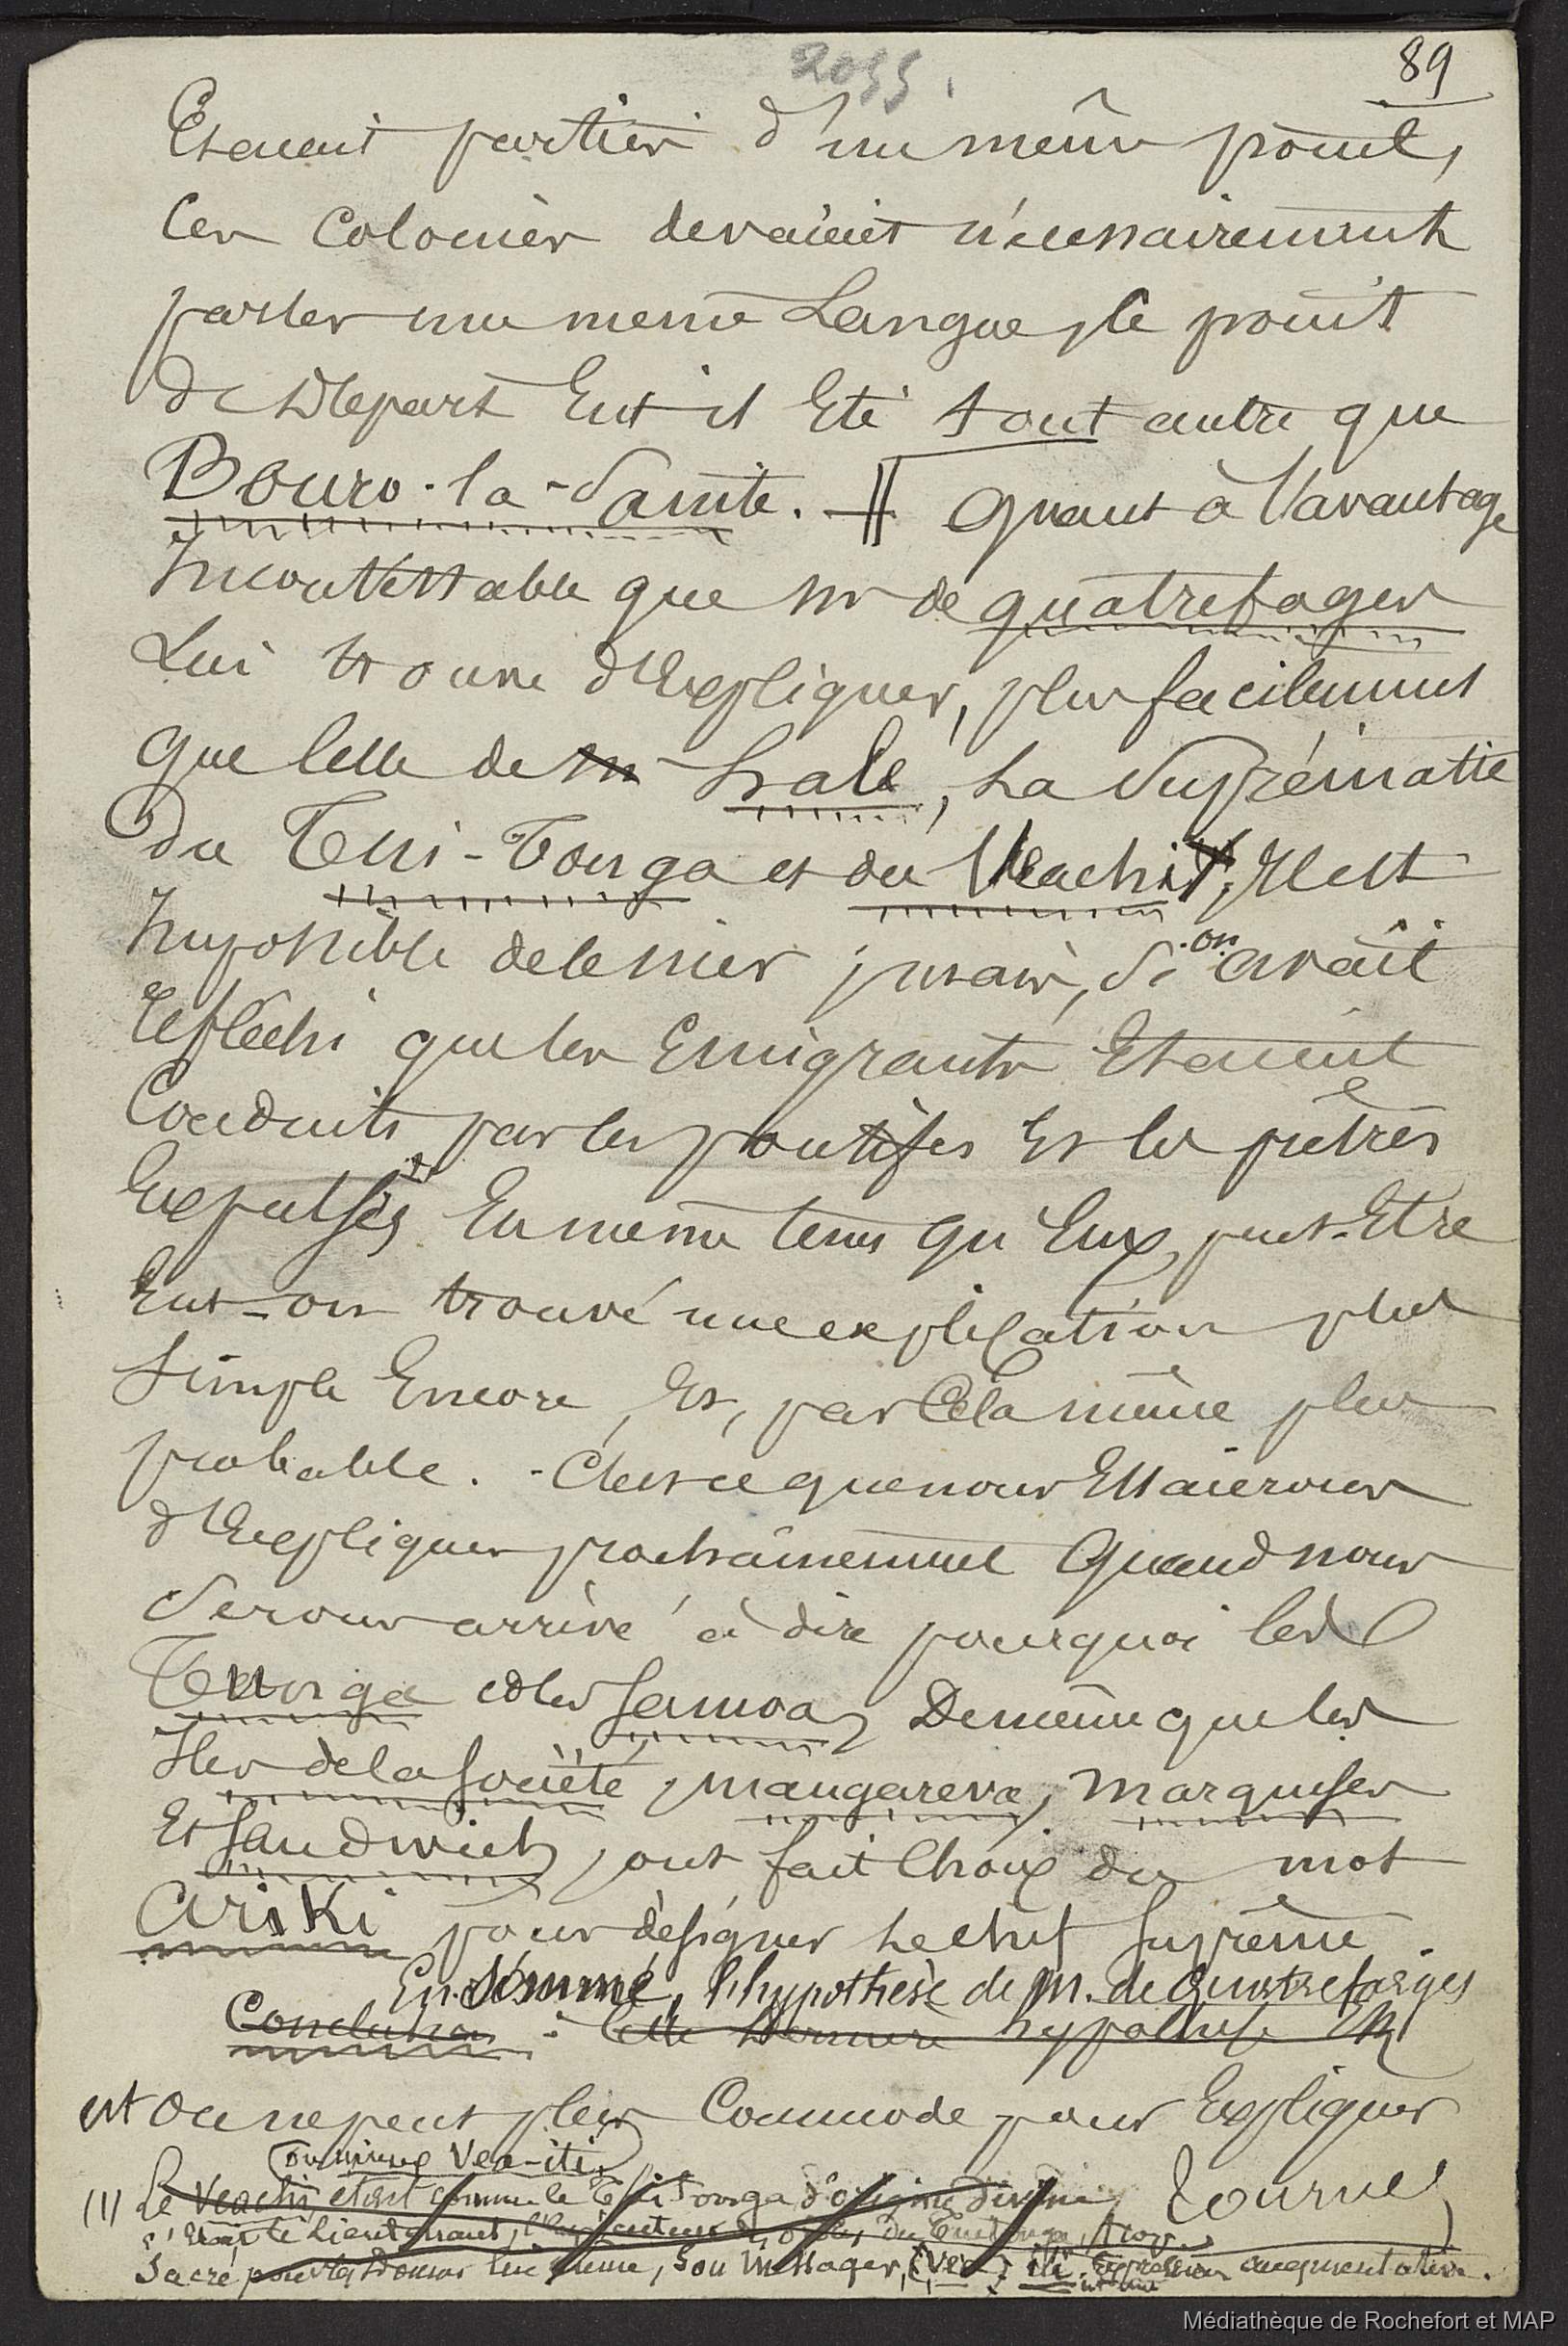 2099.
89
Etaient parties d'un même point,
Ces Colonies devaient nécessairement
parler une même Langue, le point
de Depart Eut-il Eté tout autre que
Bouro-la-Sainte. — || Quant à l'avantage
Incontestable que Mr de quatrefages
Lui trouve d'Expliquer, plus facilement
que Celle de Hale, La Suprématie
du Tui-Tonga et du Veachi, Il est
Impossible de le nier ; mais, Si on avait
réfléchi que les Emigrants Etaient
Conduits par les pontifes Et les prêtres
Expulsés En même tems qu'Eux, peut-Etre
Eut-on trouvé une explication plus
simple Encore, Et, par Cela même plus
probable. - C'est ce que nous Essaierons
d'Expliquer prochainement Quand nous
Serons arrivé à dire pourquoi les
Tonga et les Samoa, De même que les
Iles de la Société, Mangareva, Marquises
Et Sandwich, ont fait Choix du mot
Ariki pour désigner Le chef Suprême.
En Somme, l'hypothèse de M. de Quatrefages
Conclusion : Cette Dernière hypothèse Est
est On ne peut plus Commode pour Expliquer
Ou mieux Vea-iti
(1) Le Veachi était comme le Tui Tonga d'origine divine
Tournez
S'était le Lieutenant, du Tui tonga, trop
Sacré pour les Donner lui même, Son Messager, (Vea) iti. Expression augmentative.
Médiathèque de Rochefort et MAP